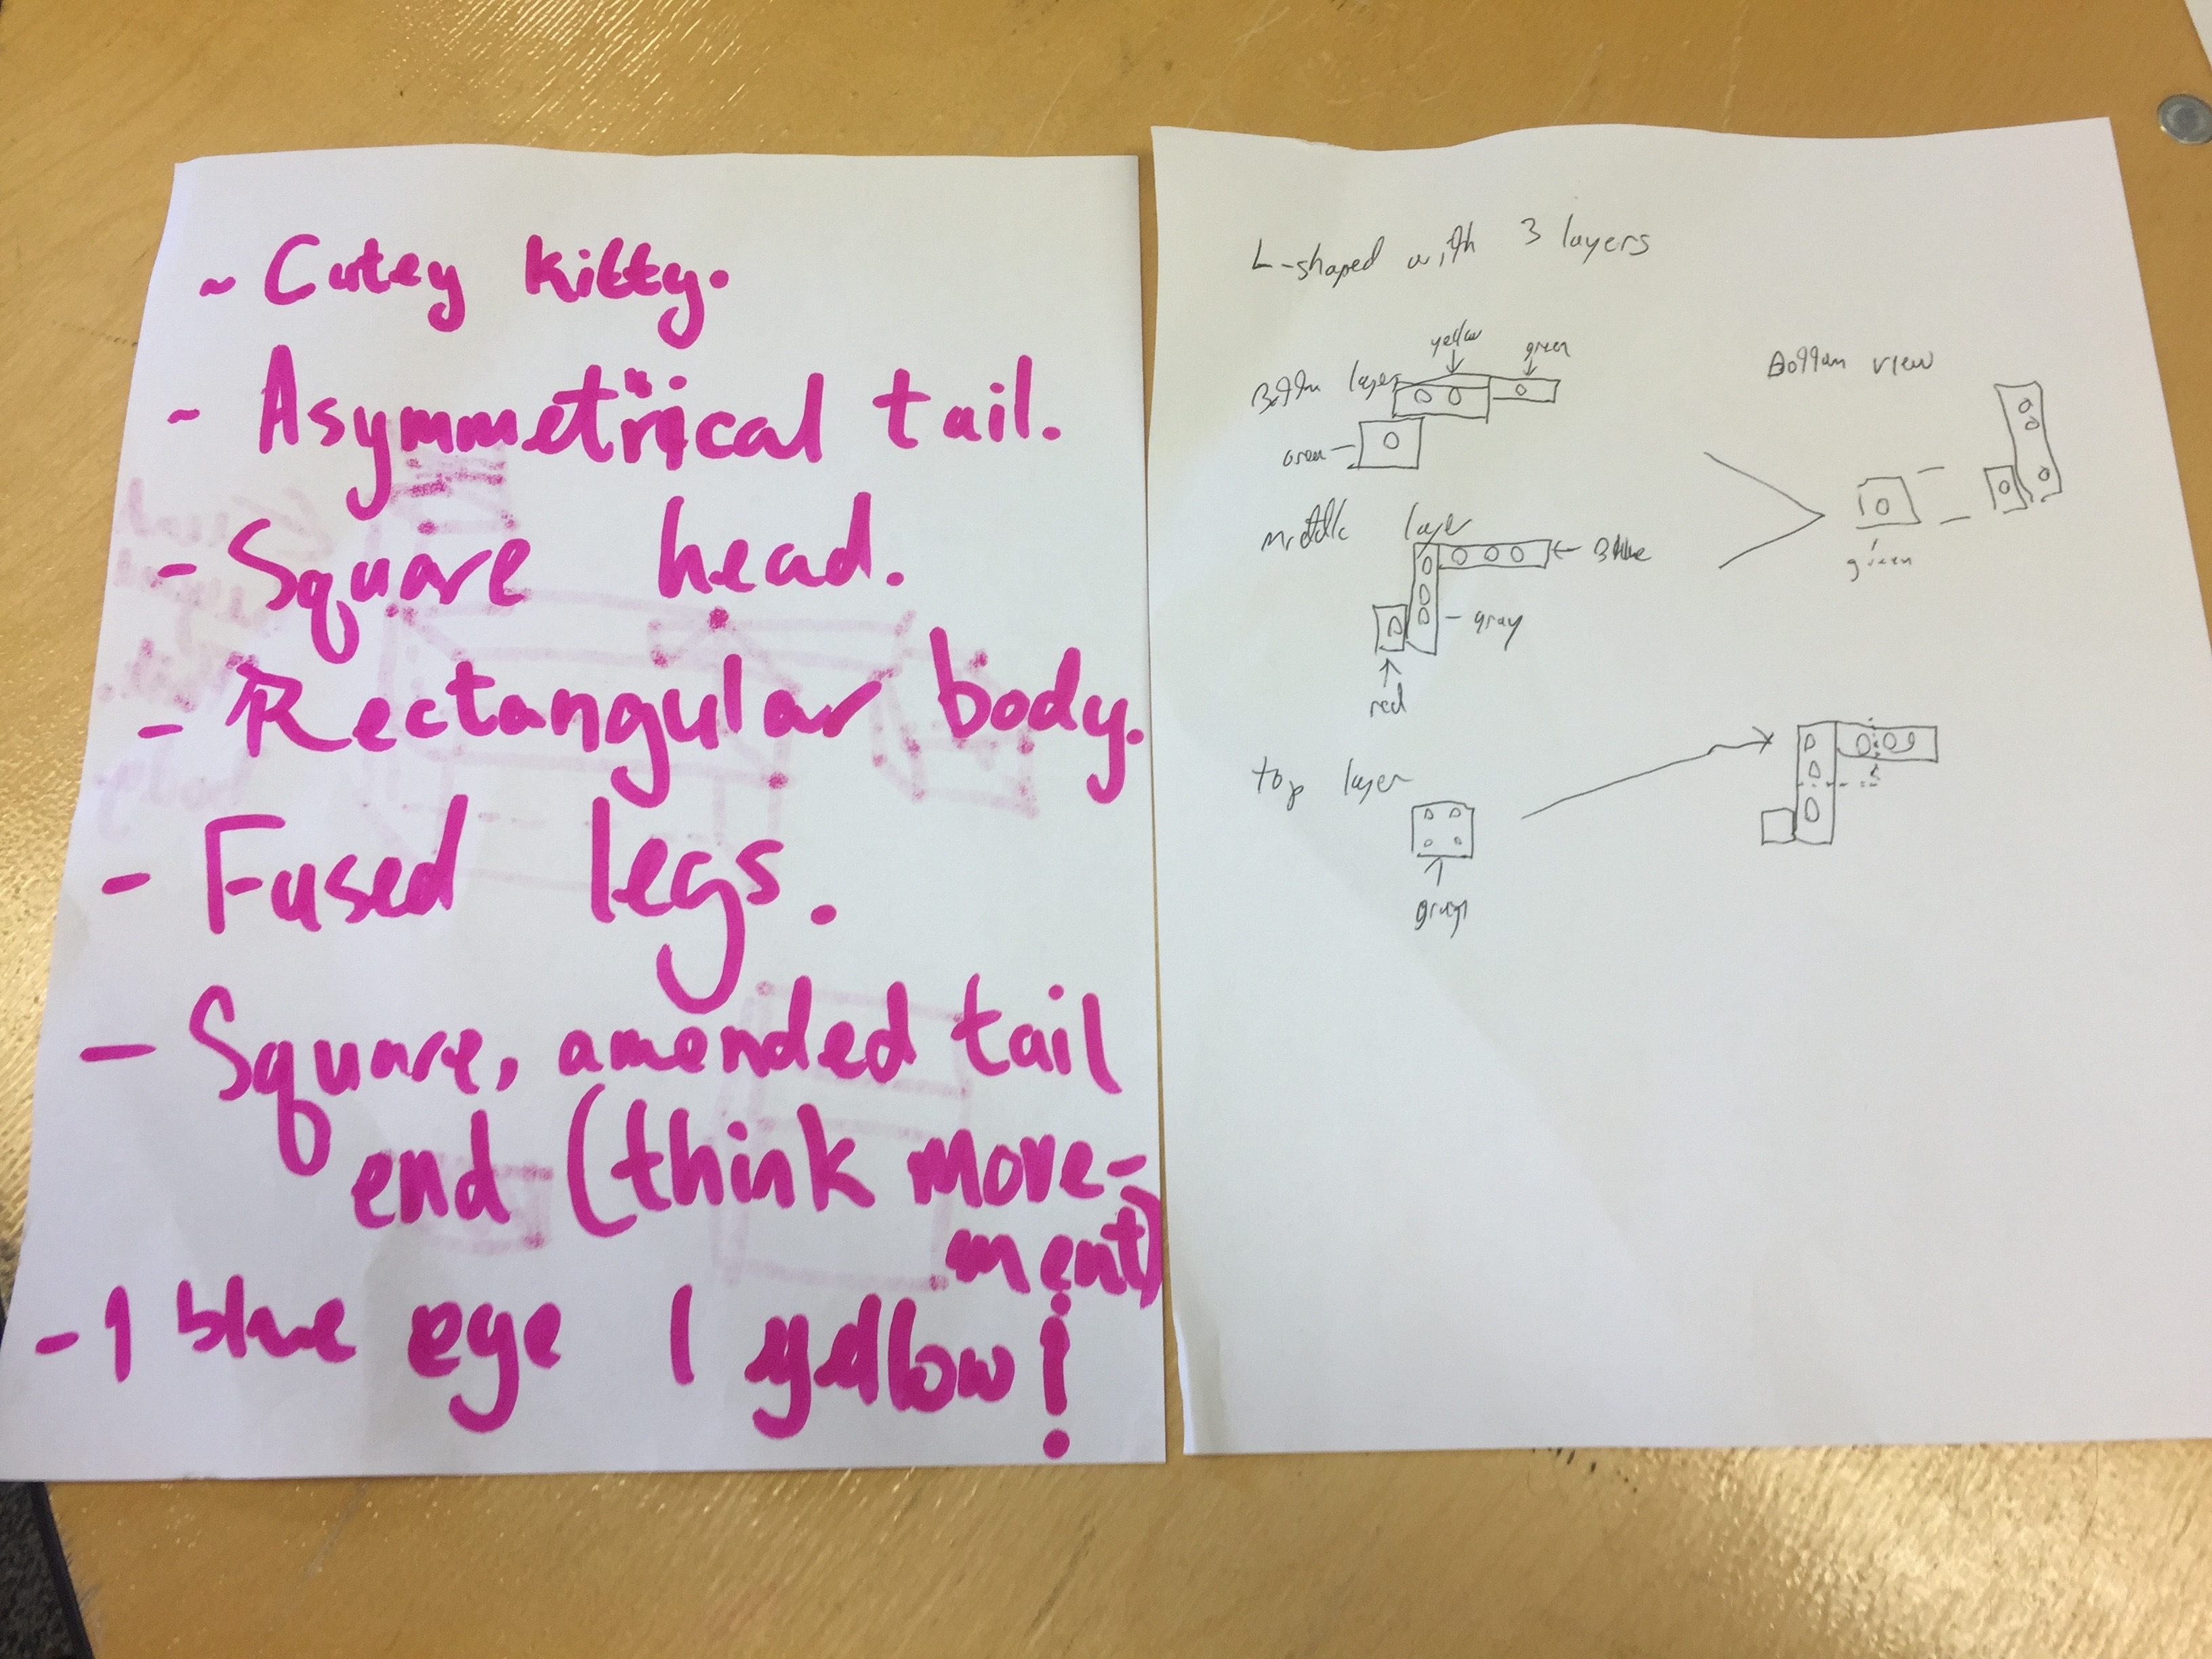 ~ Cutey kitty.
- Asymmetrical tail.
- Square head.
- Rectangular body.
- Fused legs.
- Square, amended tail
end (think move-
ment)
- 1 blue eye 1 yellow!
L-shaped with 3 layers
yellow
green
Bottom layer
Green
Bottom view
Middle layer
Blue
gray
red
green
top layer